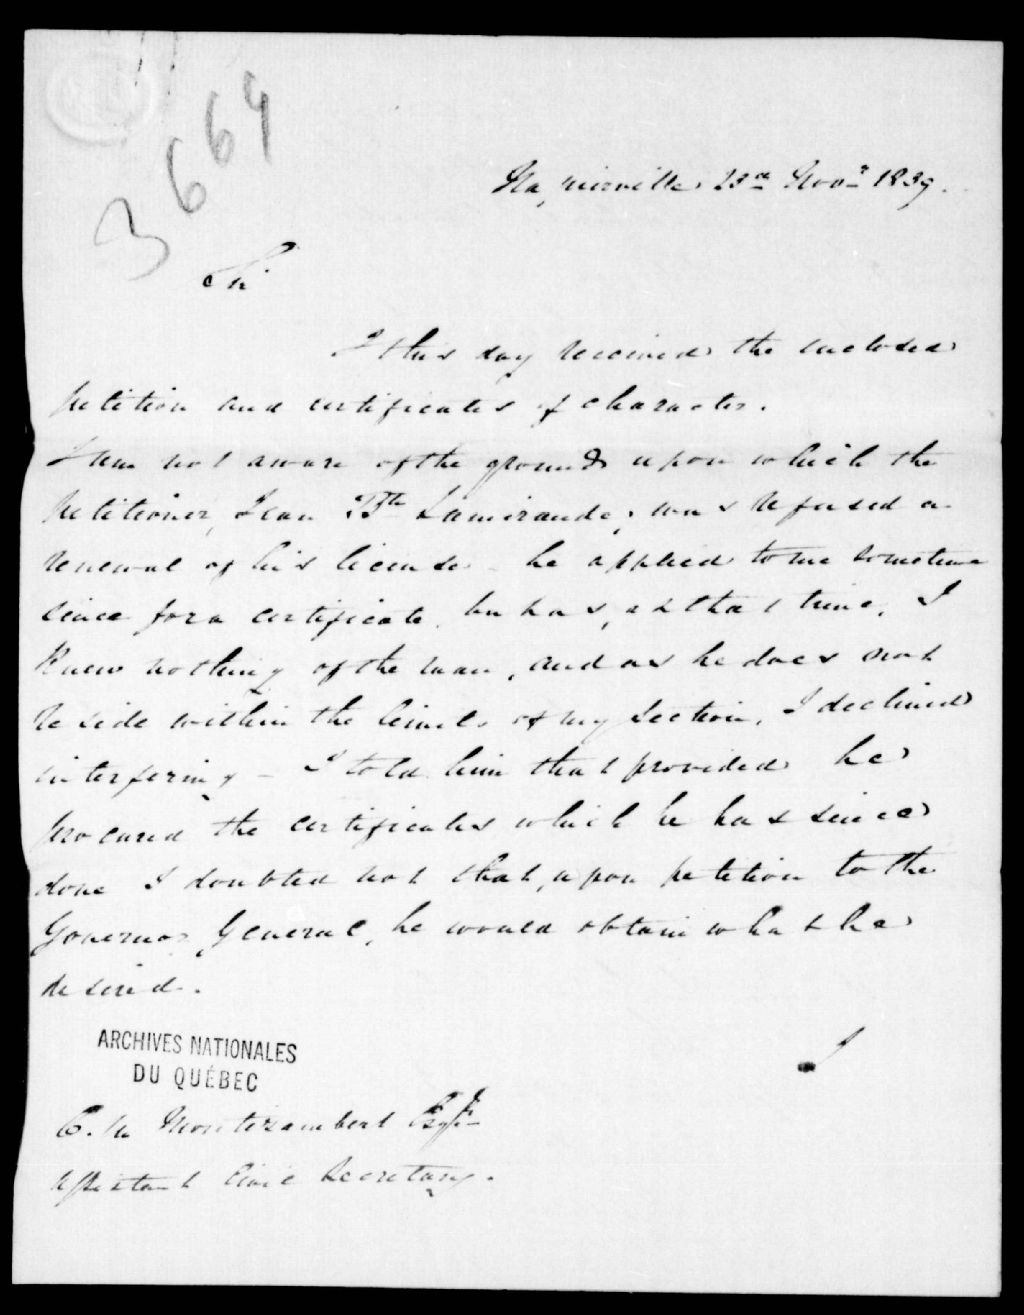 3669
Napierville 23rd Novr 1839.
Sir
I this day received the enclosed
petition and certificates of character.
I am not aware of the grounds upon which the
petitioner, Jean Bte Lamirande, was refused a
renewal of his license - he applied to me sometime
since for a certificate, but as, at that time, I
knew nothing of the man, and as he does not
reside within the limits of my section, I declined
interfering - I told him that provided he
procured the certificates which he has since
done I doubted not that, upon petition to the
Governor General, he would obtain what he
desired.
I
ARCHIVES NATIONALES
DU QUÉBEC
C. M Montizambert Esqr
Assistant Civil Secretary.